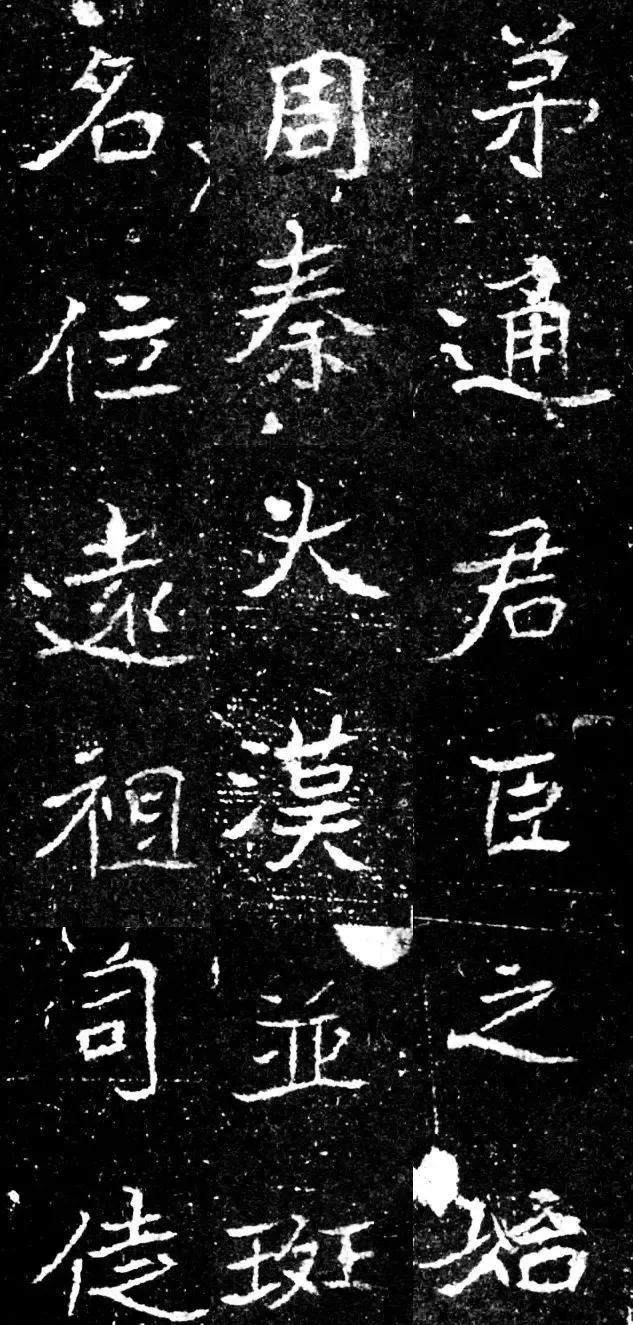 弟通君臣之始
周秦火漢並斑
名位遠祖司徒